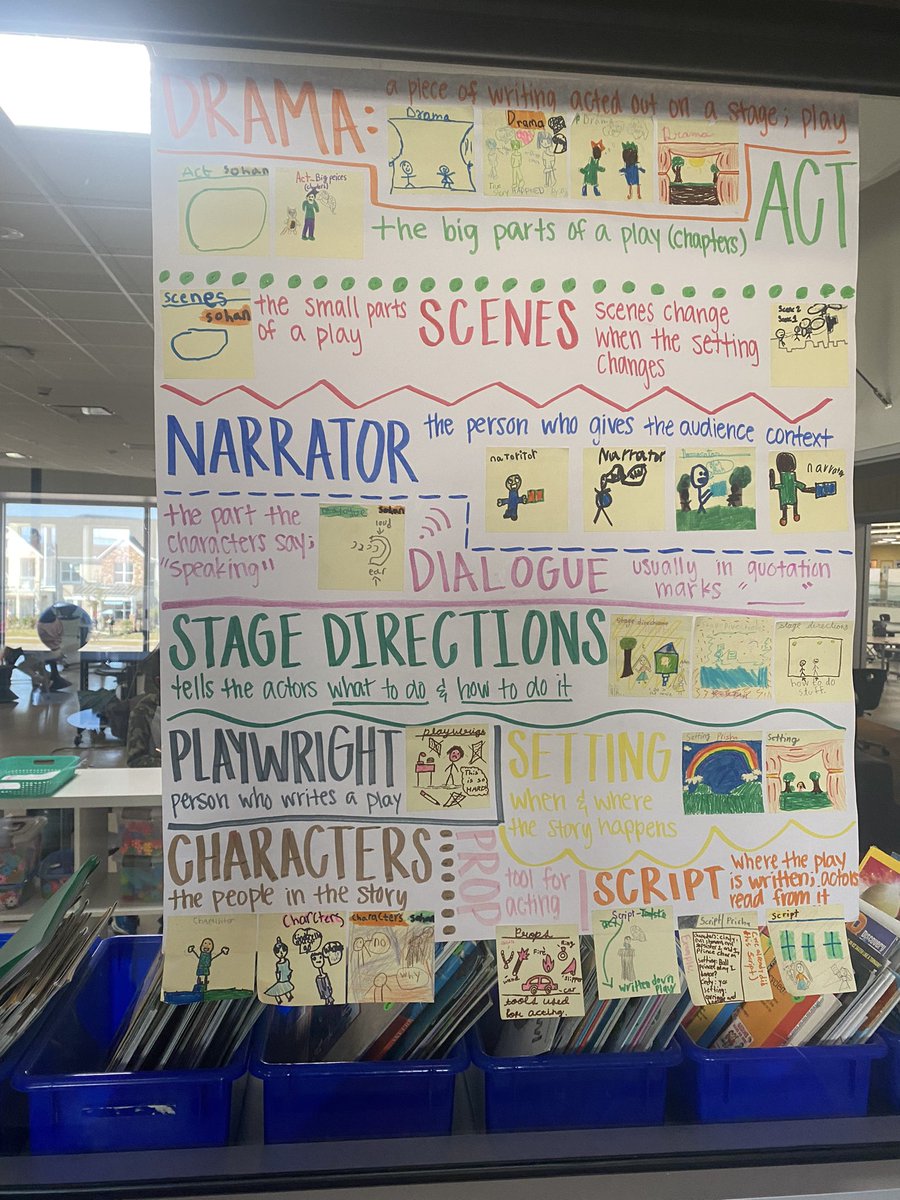 DRAMA:
a piece of writing acted out on a stage; play
Drama
Drama
Drama
Drama
Act Sohan
Act-Big peices
(chapters)
ACT
the big parts of a play (chapters)
Scenes
Sohan
the small parts
of a play
SCENES
scenes change
when the setting
changes
Scene 2
NARRATOR
the person who gives the audience context
Narrator
the part the
characters say;
"speaking"
Sohan
loud
ear
DIALOGUE
usually in quotation
marks " "
STAGE DIRECTIONS
tells the actors what to do & how to do it
Stage directions
how to do
stuff
PLAYWRIGHT
person who writes a play
This is so HARD!
SETTING
when & where
the story happens
Setting Prisha
Setting
CHARACTERS
the people in the story
Characters
Characters Sohan
no
why
PROP
tool for
acting
Props
Fire
car
tools used
for acting.
SCRIPT
where the play
is written; actors
read from it
written down
play
Script Prisha
Script